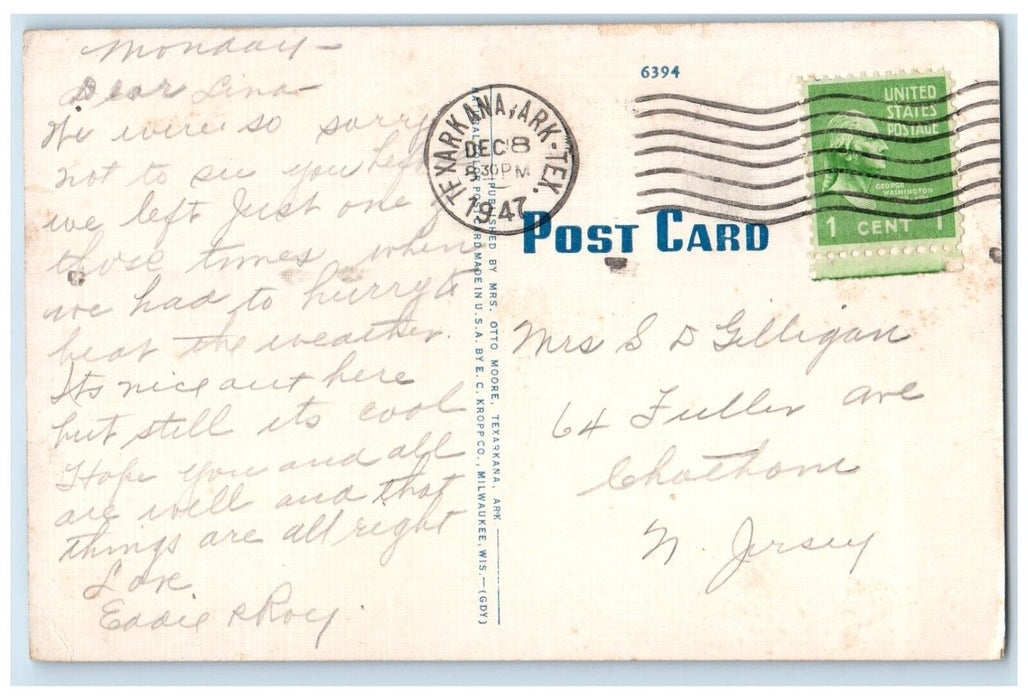 Monday -
Dear Lina -
We were so sorry
not to see you before
we left Just one of
those times when
we had to hurry to
beat the weather.
Its nice out here
but still its cool
Hope you and all
are well and that
things are all right
Love
Eddie & Roy.
TEXARKANA, ARK.-TEX.
DEC 8
8 30 PM
1947
PUBLISHED BY MRS. OTTO MOORE, TEXARKANA, ARK.
POST CARD MADE IN U.S.A. BY E. C. KROPP CO., MILWAUKEE, WIS. — (GDY)
6394
POST CARD
UNITED
STATES
POSTAGE
GEORGE
WASHINGTON
1 CENT 1
Mrs S D Gilligan
64 Fuller Ave
Chatham
N. Jersey